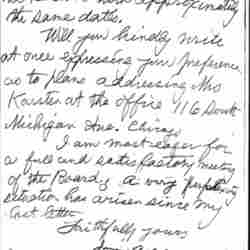 the same date.
Will you kindly write
at once expressing your preference
as to place addressing Mrs
Karsten at the office 116 South
Michigan Ave. Chicago
I am most eager for
a full and satisfactory meeting
of the Board. A very perplexing
situation has arisen since my
last letter
Faithfully yours